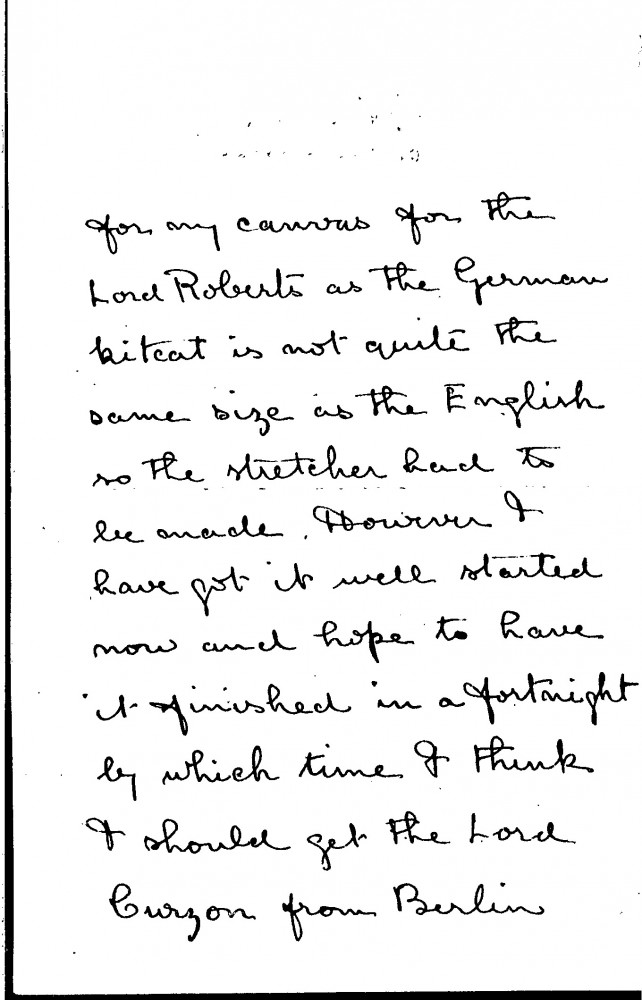 for my canvas for the
Lord Roberts as the German
kitcat is not quite the
same size as the English
so the stretcher had to
be made. However I
have got it well started
now and hope to have
it finished in a fortnight
by which time I think
I should get the Lord
Curzon from Berlin